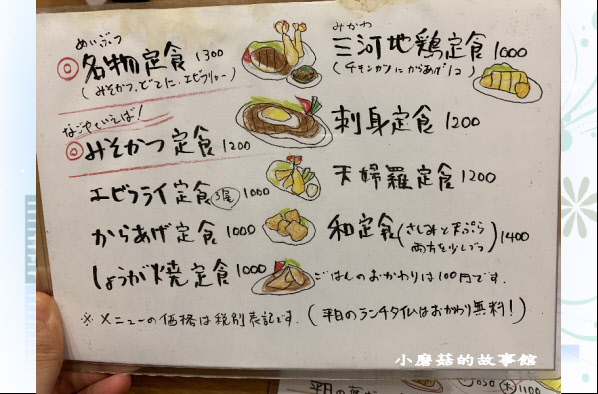 めいぶつ
◎名物定食 1300
(みそかつ、どてに、エビフリャー)
なごやといえば!
◎みそかつ定食 1200
エビフライ定食 3尾 1000
からあげ定食 1000
しょうが焼定食 1000
みかわ
三河地鶏定食 1000
(チキンカツにからあげ1コ)
刺身定食 1200
天婦羅定食 1200
和定食(さしみと天ぷら両方を少しづつ) 1400
ごはんのおかわりは100円です。
※メニューの価格は税別表記です。(平日のランチタイムはおかわり無料!)
小磨菇的故事館
1100